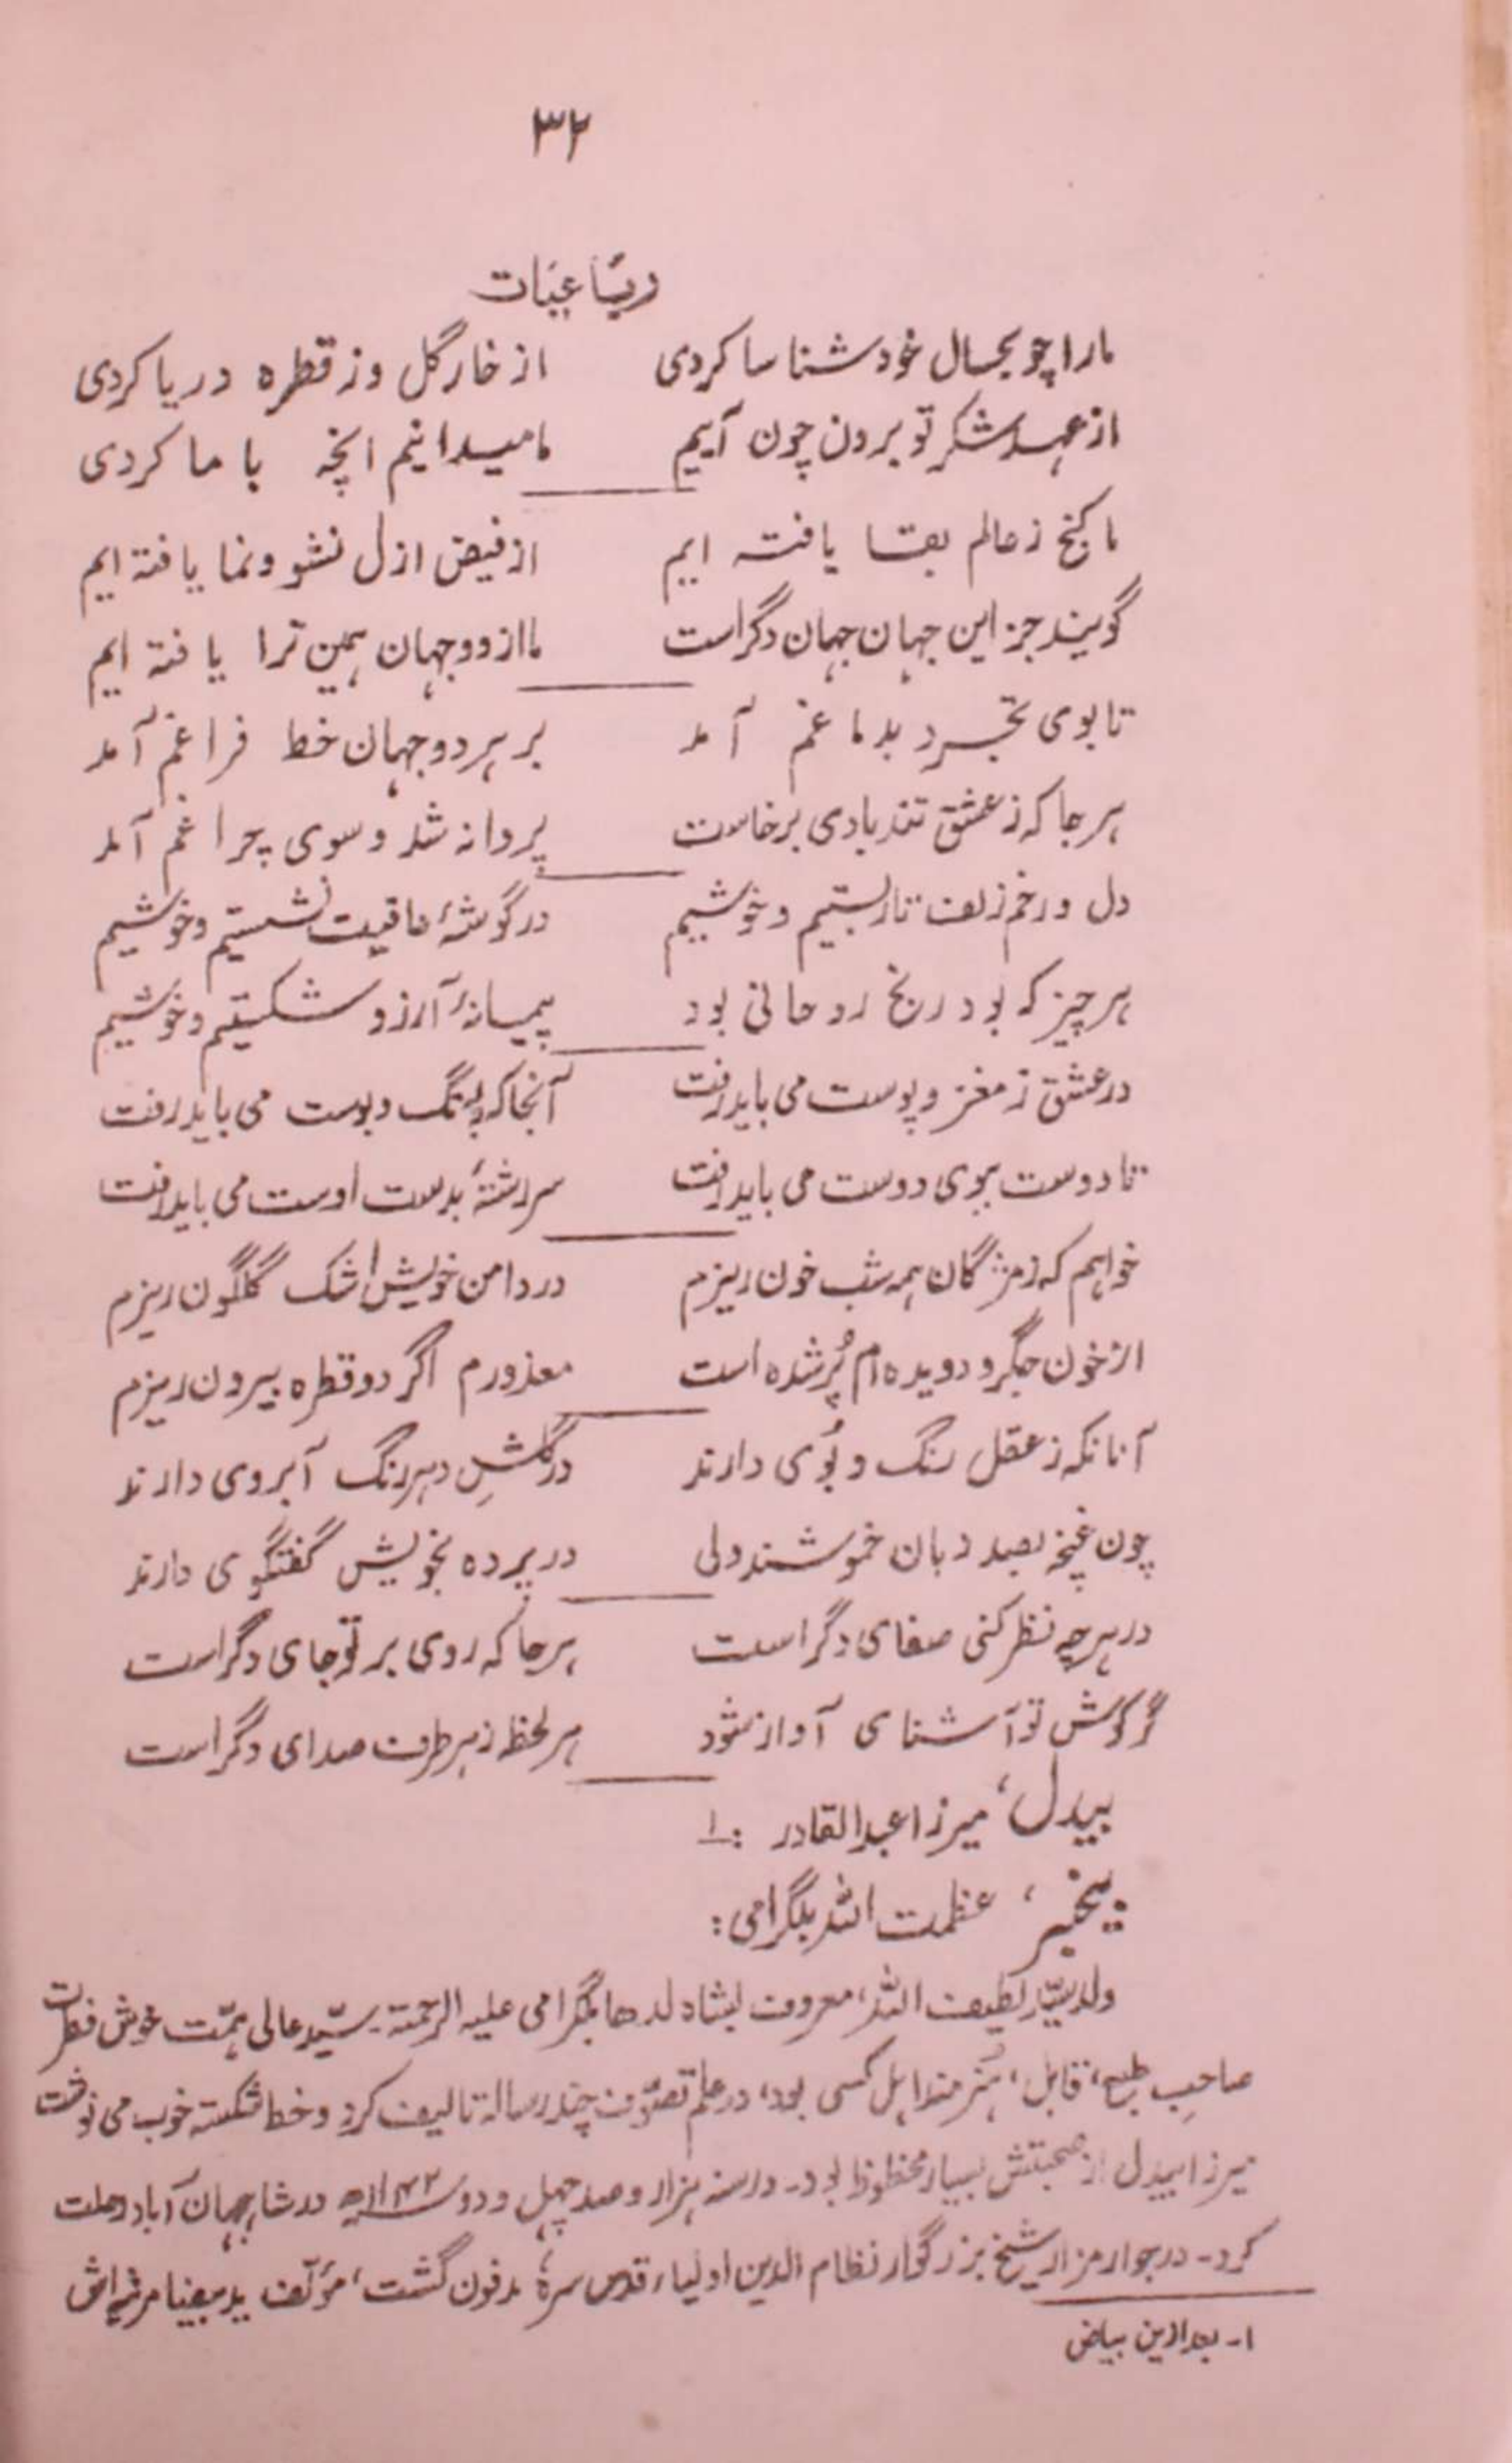 ۳۲
رباعیات
مارا چو بحال خود شناسا کردی از خار گل و ز قطره دریا کردی
از عهد شکر تو برون چون آییم ما میدانیم انچه با ما کردی
ما گنج ز عالم بقا یافته ایم از فیض ازل نشو و نما یافته ایم
گویند جز این جهان جهان دگر است ما از دو جهان همین ترا یافته ایم
تا بوی تجرد بدماغم آمد بر هر دو جهان خط فراغم آمد
هر جا که ز عشق تند بادی برخاست پروانه شد و سوی چراغم آمد
دل در خم زلف تار بستیم و خوشیم در گوشۀ عافیت نشستیم و خوشیم
هر چیز که بود رنج روحانی بود پیمانۀ آرزو شکستیم و خوشیم
در عشق ز مغز و پوست می باید رفت آنجا که نه رنگ و بوست می باید رفت
تا دوست ببوی دوست می باید رفت سررشتۀ بدست اوست می باید رفت
خواهم که ز مژگان همه شب خون ریزم در دامن خویش اشک گلگون ریزم
از خون جگر دو دیده ام پُر شده است معذورم اگر دو قطره بیرون ریزم
آنانکه ز عقل رنگ و بُوی دارند در گلشنِ دهر رنگ آبروی دارند
چون غنچه بصد زبان خموشند ولی در پرده بخویش گفتگوی دارند
در هر چه نظر کنی صفای دگر است هر جا که روی بر تو جای دگر است
گر گوش تو آشنای آواز شود هر لحظه ز هر طرف صدای دگر است
بیدل، میرزا عبدالقادر :۱
بیخبر، عظمت الله بلگرامی:
ولد سیّد لطیف الله، معروف بشاه لدها بلگرامی علیه الرحمته۔ سیّد عالی همّت خوش فطرت
صاحبِ طبع، قابل، هنرمند اهل کسی بود، در علم تصوّف چند رساله تالیف کرد و خط شکسته خوب می نوشت
میرزا بیدل از صحبتش بسیار محظوظ بود۔ در سنه هزار و صد چهل و دو ۱۱۴۲ھ در شاهجهان آباد رحلت
کرد۔ در جوار مزار شیخ بزرگوار نظام الدین اولیاء قدس سرۀ مدفون گشت، مؤلف ید بیضا مرثیه اش
۱۔ بعد ازین بیاض